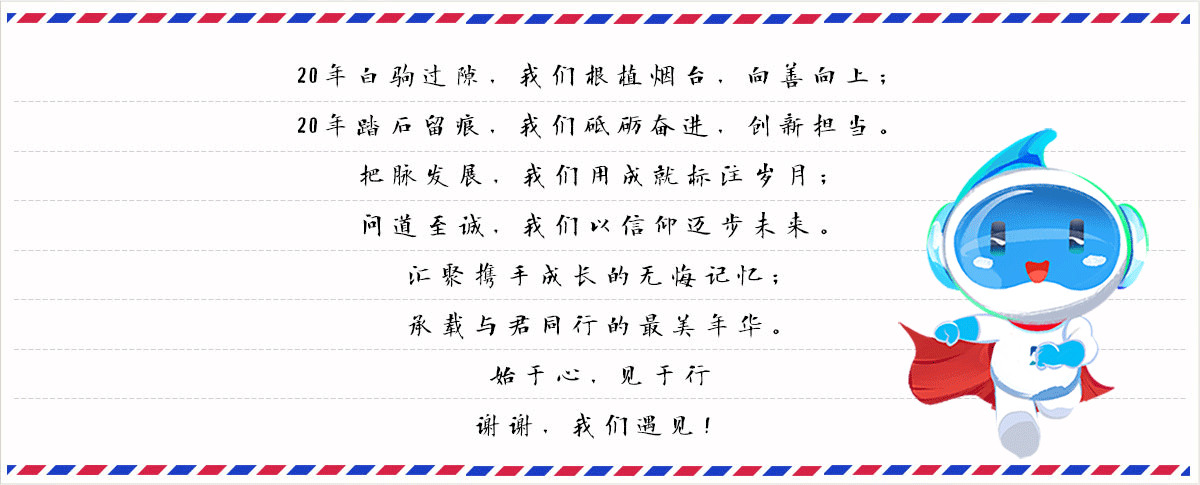 20年白驹过隙，我们根植烟台，向善向上；
20年踏石留痕，我们砥砺奋进，创新担当。
把脉发展，我们用成就标注岁月；
问道至诚，我们以信仰迈步未来。
汇聚携手成长的无悔记忆；
承载与君同行的最美年华。
始于心，见于行
谢谢，我们遇见！